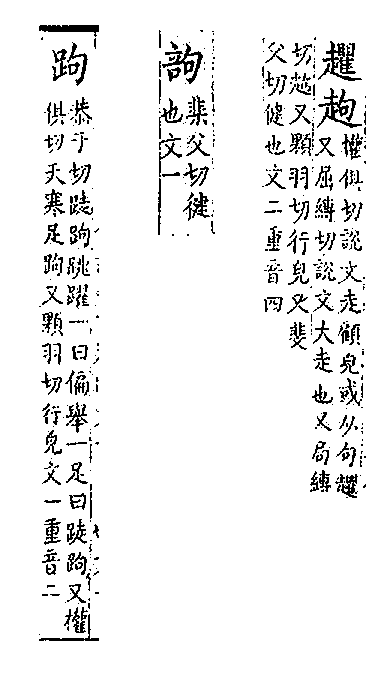 𧾱
權俱切說文走顧皃或从句𧾱
又屈縛切說文大走也又局縛
切又顆羽切行皃又斐
父切健也文二重音四
斐父切健
也文一
跔
恭于切跿跔跳躍一曰偏舉一足曰跿跔又權
俱切天寒足跔又顆羽切行皃文一重音二